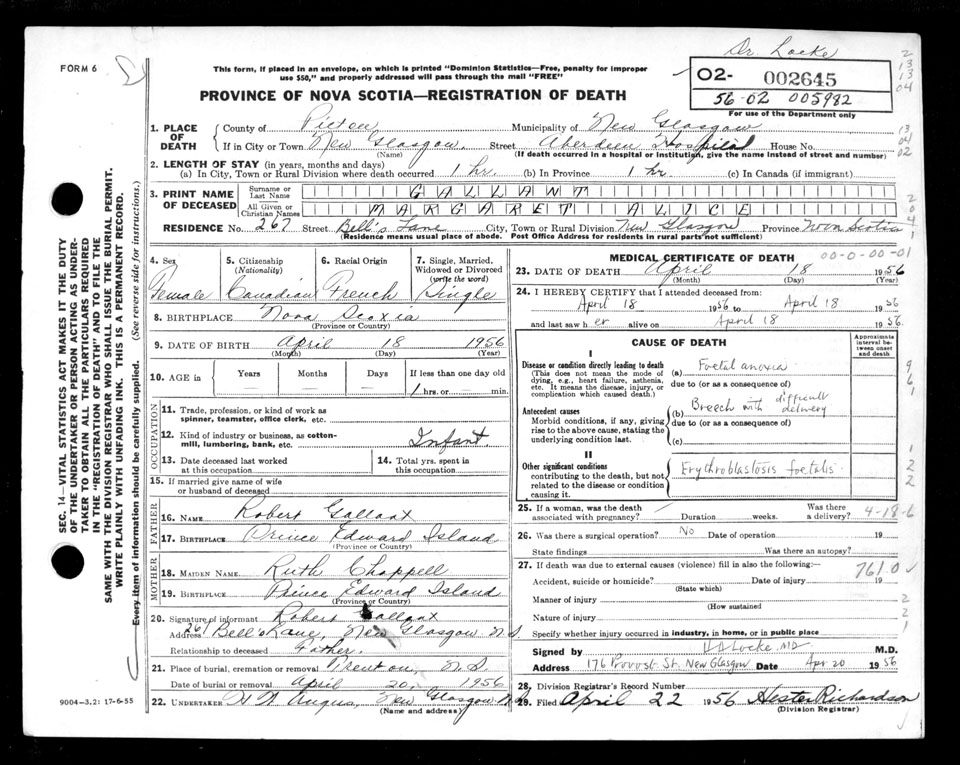 Dr. Locke
FORM 6
This form, if placed in an envelope, on which is printed "Dominion Statistics—Free, penalty for improper
use $50," and properly addressed will pass through the mail "FREE"
O2- 002645
56-02 005982
For use of the Department only
PROVINCE OF NOVA SCOTIA—REGISTRATION OF DEATH
1. PLACE OF DEATH
County of Pictou Municipality of New Glasgow
If in City or Town New Glasgow. Street Aberdeen Hospital House No.
(Name) (If death occurred in a hospital or institution, give the name instead of street and number)
2. LENGTH OF STAY (in years, months and days)
(a) In City, Town or Rural Division where death occurred 1 hr. (b) In Province 1 hr. (c) In Canada (if immigrant)
3. PRINT NAME OF DECEASED
Surname or Last Name GALLANT
All Given or Christian Names MARGARET ALICE
RESIDENCE No. 267 Street Bell's Lane City, Town or Rural Division New Glasgow Province Nova Scotia
(Residence means usual place of abode. Post Office Address for residents in rural parts not sufficient)
4. Sex
Female
5. Citizenship (Nationality)
Canadian
6. Racial Origin
French
7. Single, Married, Widowed or Divorced (write the word)
Single
8. BIRTHPLACE Nova Scoxia
(Province or Country)
9. DATE OF BIRTH April 18 1956
(Month) (Day) (Year)
10. AGE in Years Months Days If less than one day old
1 hrs. or — min.
OCCUPATION
11. Trade, profession, or kind of work as spinner, teamster, office clerk, etc.
12. Kind of industry or business, as cotton-mill, lumbering, bank, etc. Infant
13. Date deceased last worked at this occupation
14. Total yrs. spent in this occupation
15. If married give name of wife or husband of deceased
FATHER
16. NAME Robert Gallaax
17. BIRTHPLACE Prince Edward Island
(Province or Country)
MOTHER
18. MAIDEN NAME Ruth Chappell
19. BIRTHPLACE Prince Edward Island
(Province or Country)
20. Signature of informant Robert Gallaax
Address 267 Bell's Lane, New Glasgow N.S.
Relationship to deceased Father.
21. Place of burial, cremation or removal Trenton, N.S.
Date of burial or removal April 20, 1956
22. UNDERTAKER Angus, New Glasgow N.S.
(Name and address)
MEDICAL CERTIFICATE OF DEATH 00-0-00-01
23. DATE OF DEATH April 18 1956
(Month) (Day) (Year)
24. I HEREBY CERTIFY that I attended deceased from:
April 18 1956 to April 18 1956
and last saw her alive on April 18 1956.
CAUSE OF DEATH
Approximate interval between onset and death
I
Disease or condition directly leading to death
(This does not mean the mode of dying, e.g., heart failure, asthenia, etc. It means the disease, injury, or complication which caused death.)
(a) Foetal anoxia
due to (or as a consequence of)
Antecedent causes
Morbid conditions, if any, giving rise to the above cause, stating the underlying condition last.
(b) Breech with difficult delivery
due to (or as a consequence of)
(c)
II
Other significant conditions
contributing to the death, but not related to the disease or condition causing it.
Erythroblastosis foetalis.
25. If a woman, was the death associated with pregnancy? Duration weeks. Was there a delivery? 4-18-6
26. Was there a surgical operation? No Date of operation 19
State findings Was there an autopsy?
27. If death was due to external causes (violence) fill in also the following:— 761.0
Accident, suicide or homicide? Date of injury 19
(State which)
Manner of injury
(How sustained)
Nature of injury
Specify whether injury occurred in industry, in home, or in public place
Signed by Locke MD M.D.
Address 176 Provost St. New Glasgow Date Apr 20 1956
28. Division Registrar's Record Number
29. Filed April 22 1956 Hester Richardson
(Division Registrar)
SEC. 14—VITAL STATISTICS ACT MAKES IT THE DUTY
OF THE UNDERTAKER OR PERSON ACTING AS UNDER-
TAKER TO OBTAIN ALL THE PARTICULARS REQUIRED
IN THE "REGISTRATION OF DEATH" AND TO FILE THE
SAME WITH THE DIVISION REGISTRAR WHO SHALL ISSUE THE BURIAL PERMIT.
WRITE PLAINLY WITH UNFADING INK. THIS IS A PERMANENT RECORD.
Every item of information should be carefully supplied. (See reverse side for instructions.)
9004-3.2: 17-6-55